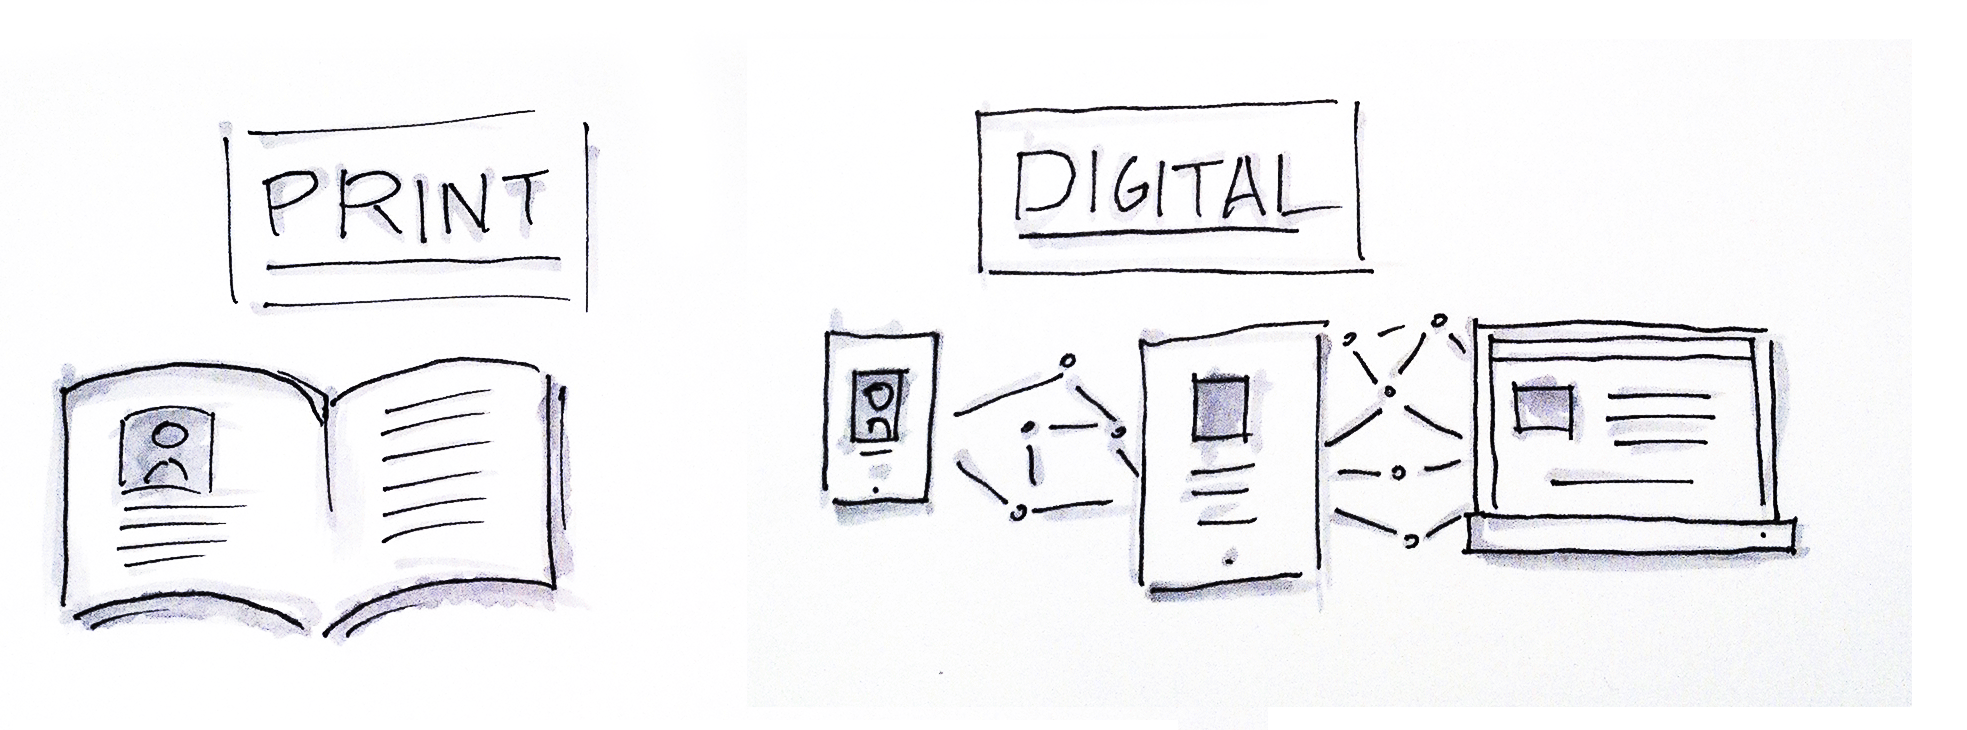 PRINT
DIGITAL